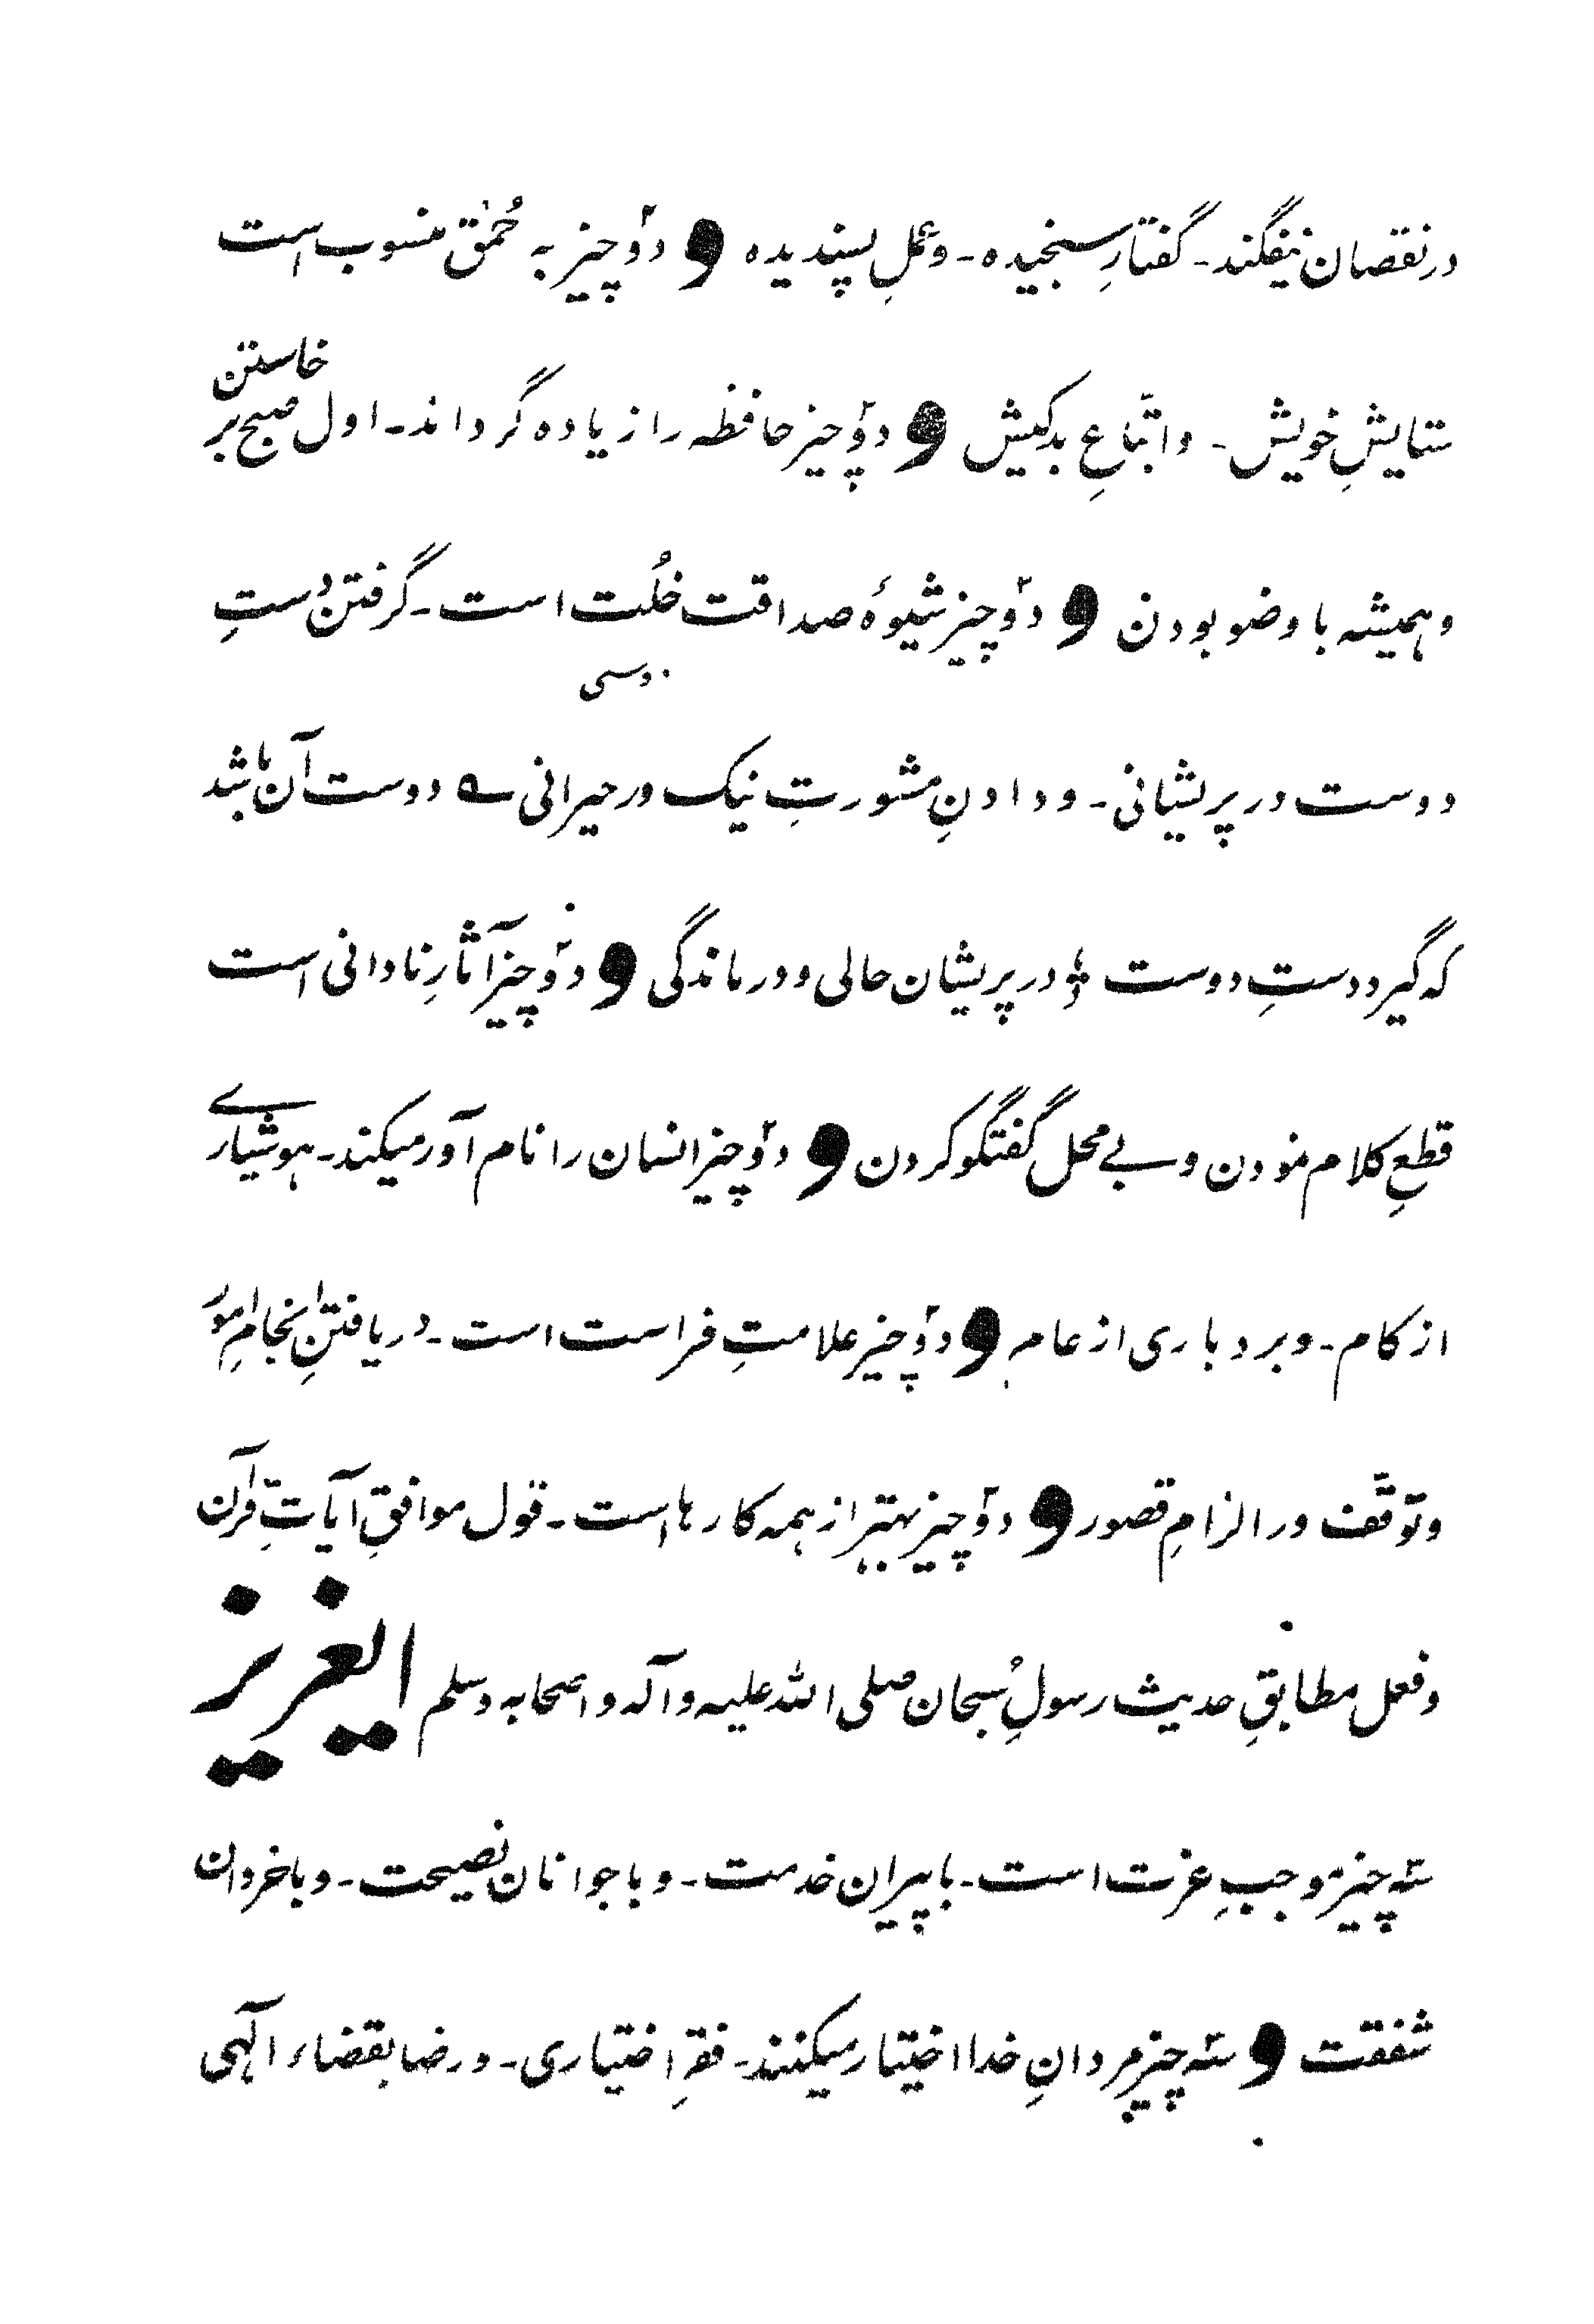 در نقصان نیفگند۔ گفتارِ سنجیدہ۔ و عملِ پسندیدہ و دوٗ چیز بہ حُمق منسوب است
ستایشِ خویش۔ و اتّباعِ بدکیش و دوٗ چیز حافظہ را زیادہ گرداند۔ اول صبح بر خاستن
و ہمیشہ با وضو بودن و دوٗ چیز شیوۂ صداقت خُلت است۔ گرفتن دستِ
دوستی
دوست در پریشانی۔ و دادنِ مشورتِ نیک در حیرانی ؎ دوست آن باشد
کہ گیرد دستِ دوست ؛ در پریشان حالی و درماندگی و دوٗ چیز آثارِ نادانی است
قطعِ کلام نمودن و بے محل گفتگو کردن و دوٗ چیز انسان را نام آور میکند۔ ہوشیارے
از کام۔ و بردباری از عامہ و دوٗ چیز علامتِ فراست است۔ دریافتنِ انجامِ امور
و توقّف در الزامِ قصور و دوٗ چیز بہتر از ہمہ کارہا است۔ قول موافقِ آیاتِ قرآن
و فعل مطابقِ حدیث رسولِ سُبحان صلی اللہ علیہ و آلہ و اصحابہ وسلم ایعزیز
سہ چیز موجبِ عزت است۔ با پیران خدمت۔ و با جوانان نصیحت۔ و با خردان
شفقت و سہ چیز مردانِ خدا اختیار میکنند۔ فقرِ اختیاری۔ و رضا بقضاء الٓہی